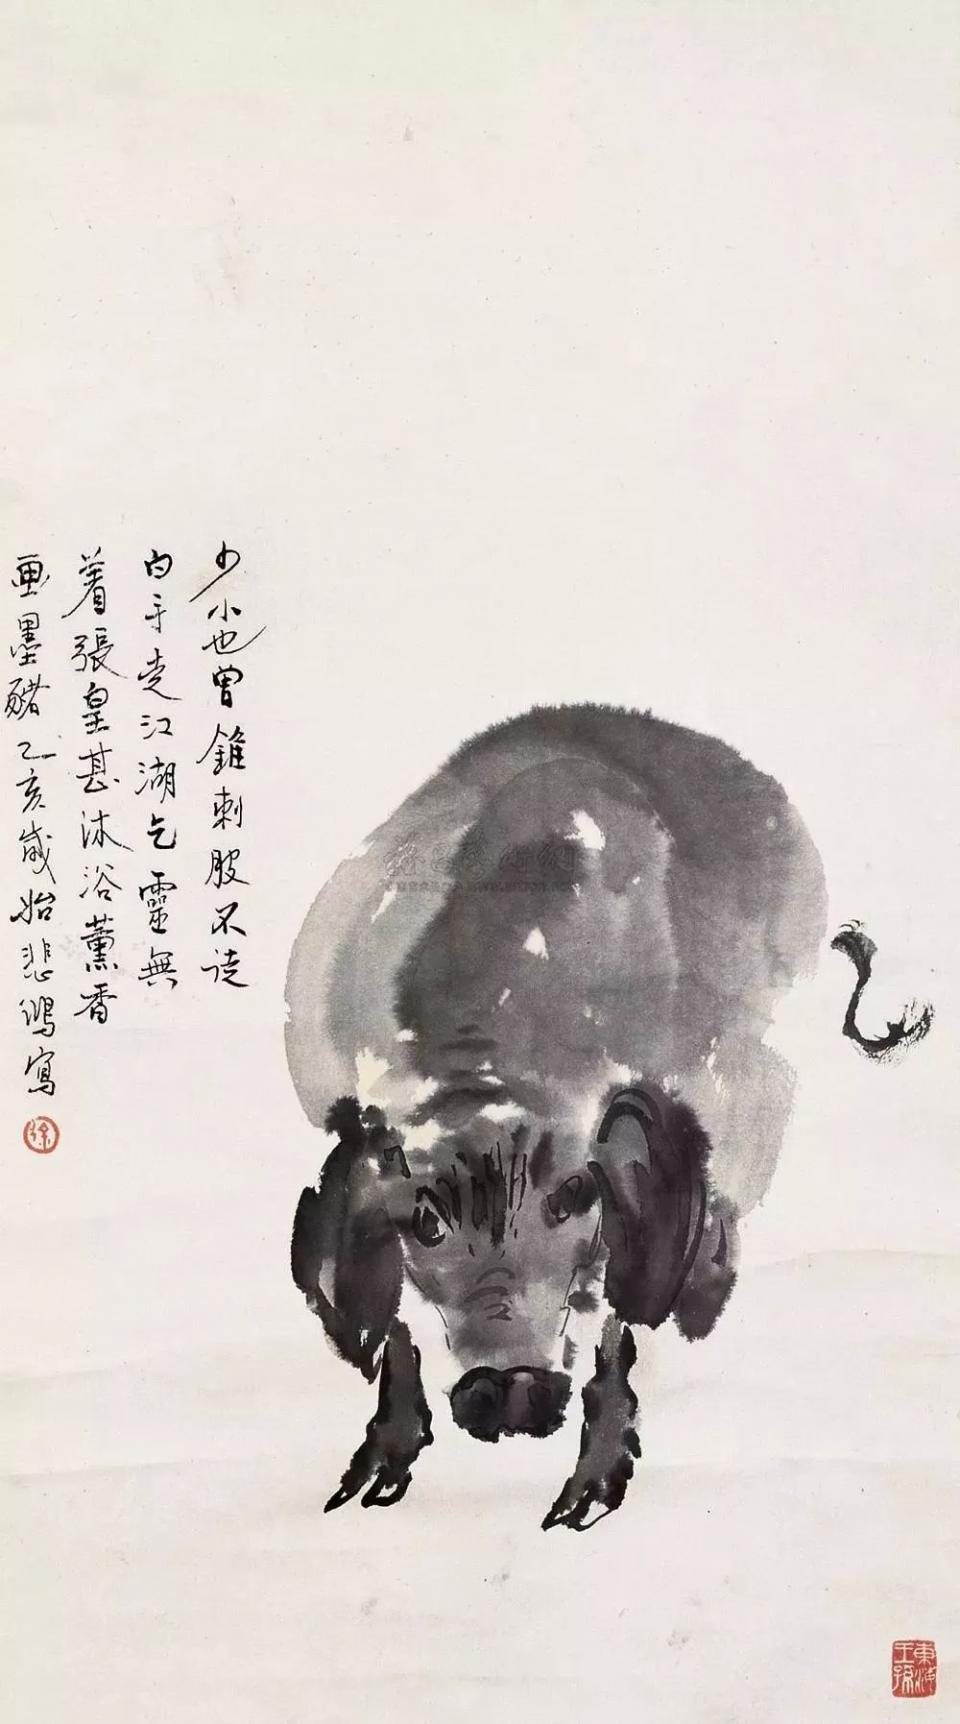 少小也曾錐刺股不徒
白手走江湖乞靈無
着張皇甚沐浴薰香
畫墨豬乙亥歲始悲鴻寫
徐
東海王孫